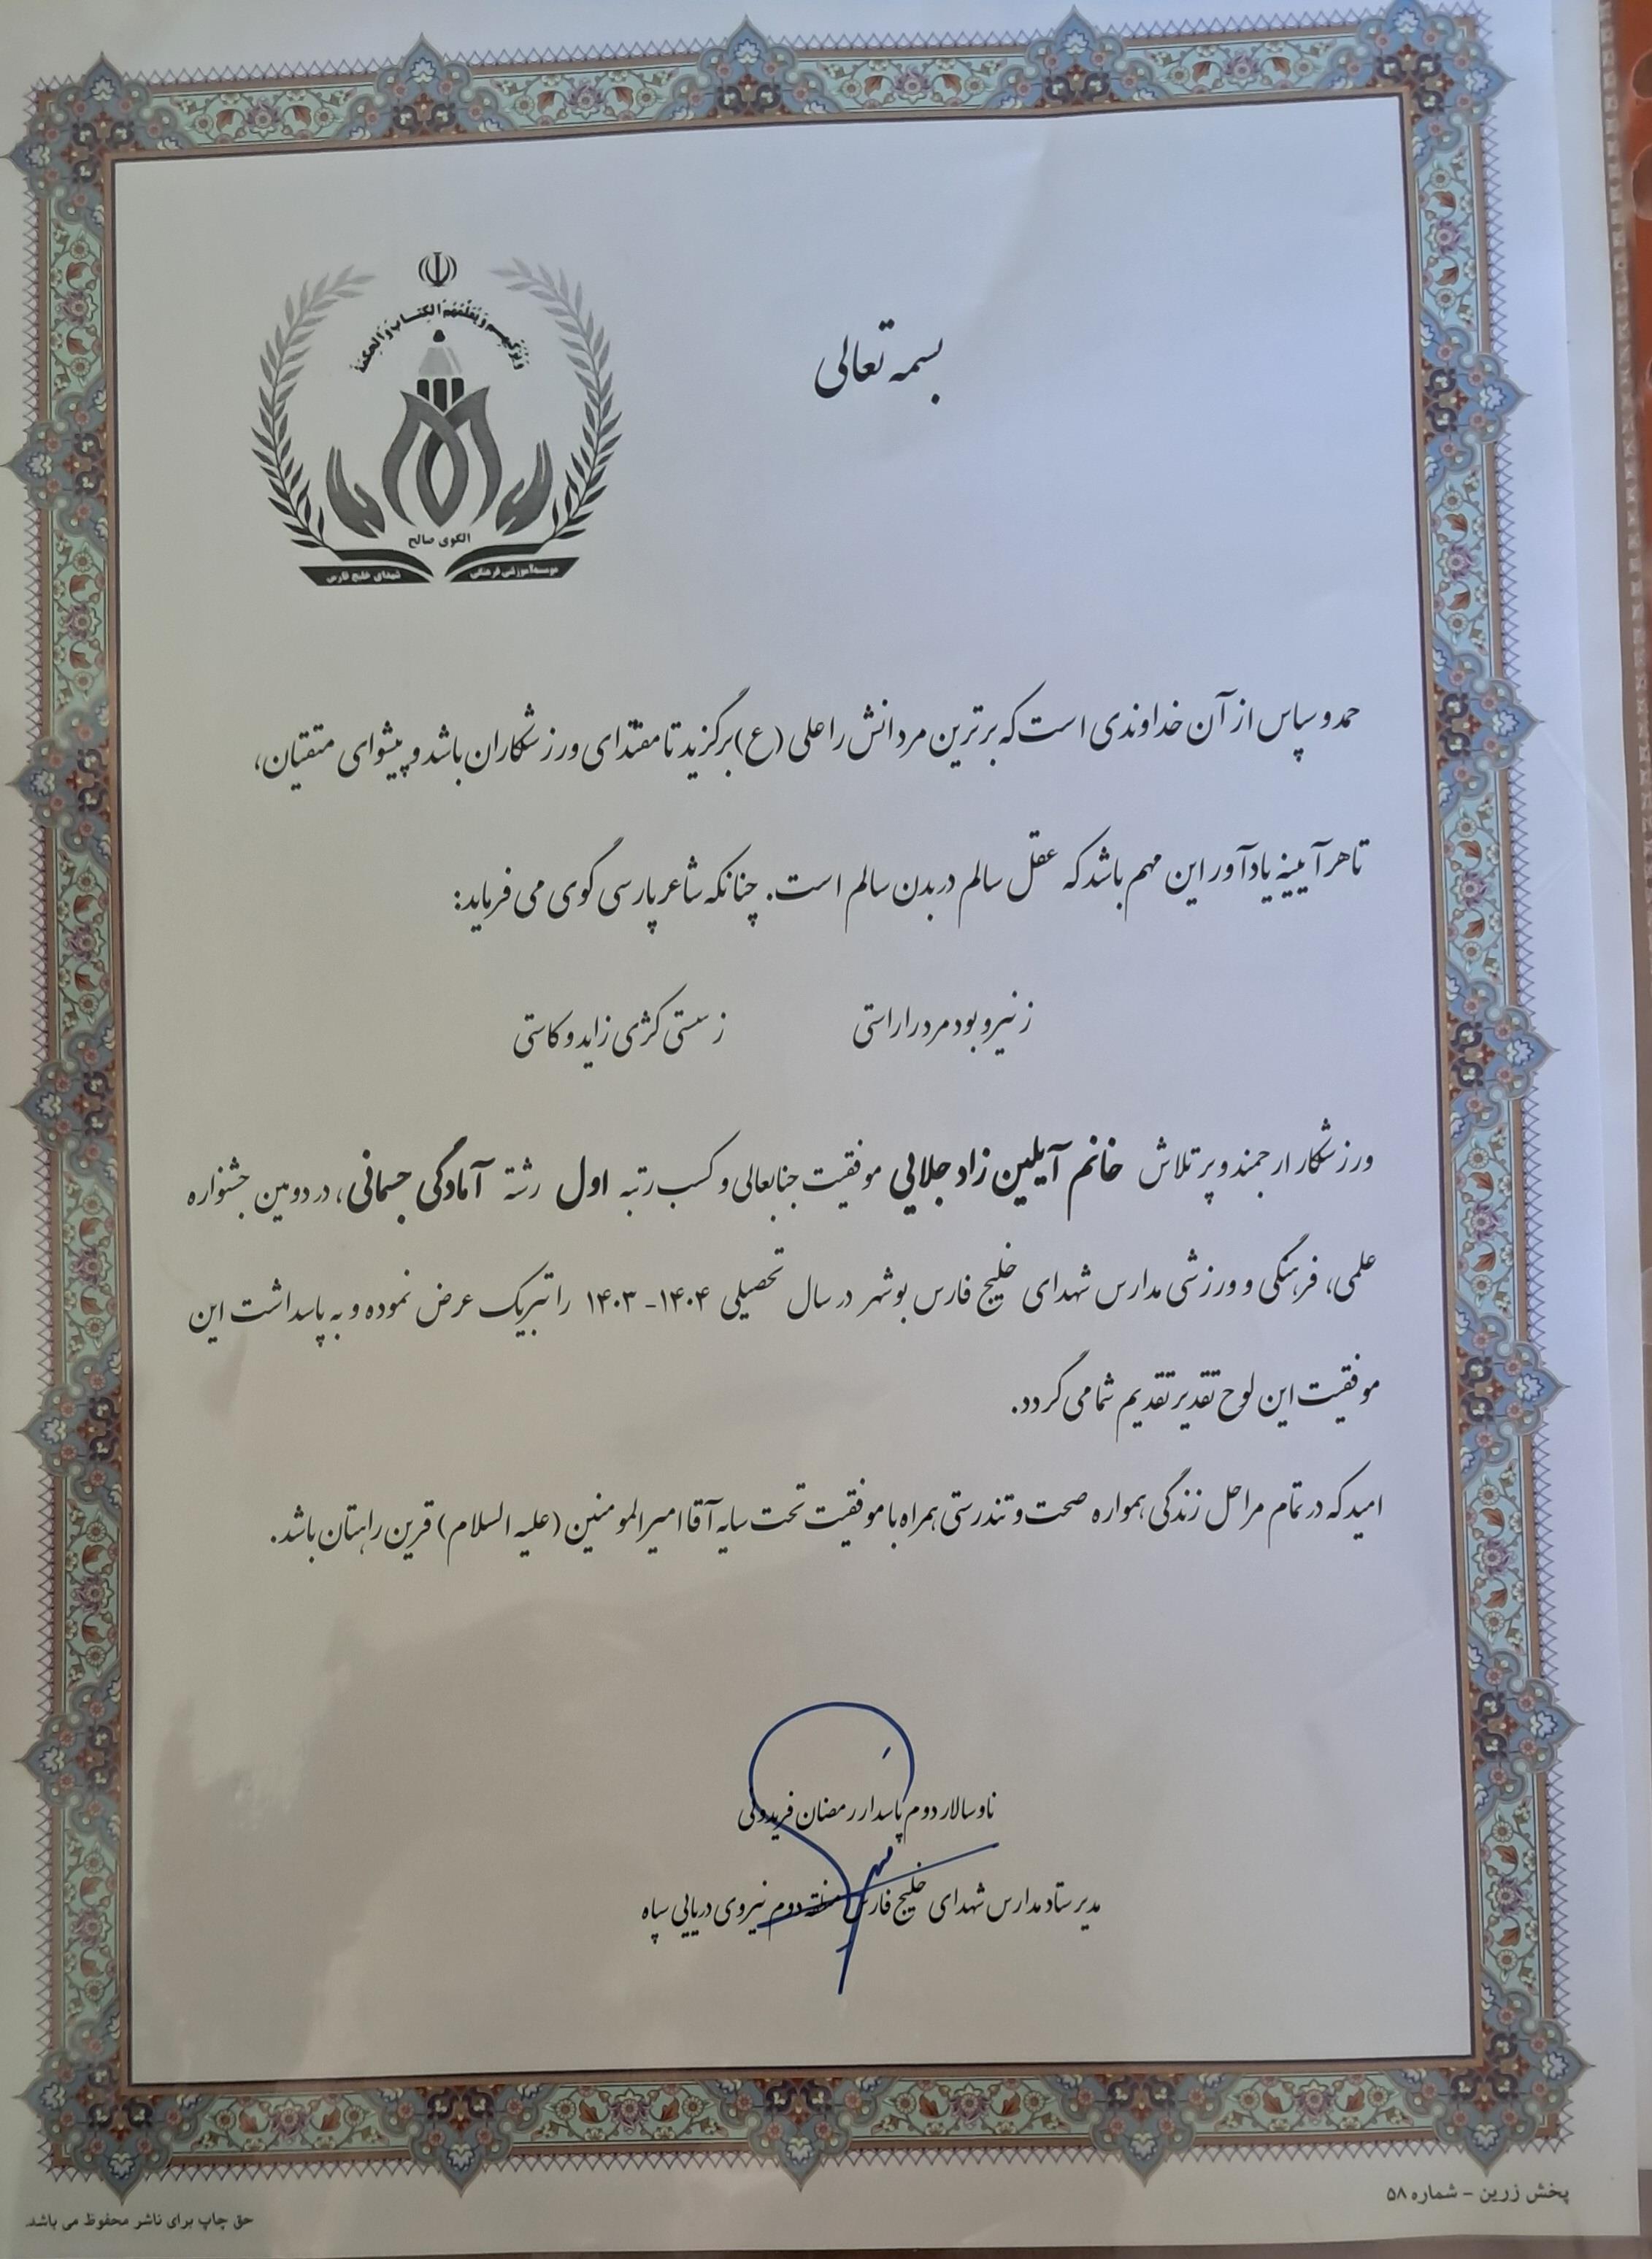 بسمه تعالی
وَيُزَكِّيهِمْ وَيُعَلِّمُهُمُ الْكِتَابَ وَالْحِكْمَةَ
الگوی صالح
موسسه آموزشی فرهنگی شهدای خلیج فارس
حمد و سپاس از آن خداوندی است که برترین مردانش را علی (ع) برگزید تا مقتدای ورزشکاران باشد و پیشوای متقیان،
تا هر آیینه یادآور این مهم باشد که عقل سالم در بدن سالم است. چنانکه شاعر پارسی گوی می فرماید:
ز نیرو بود مرد را راستی ز سستی کژی زاید و کاستی
ورزشکار ارجمند و پر تلاش خانم آیلین زاد جلالی موفقیت جنابعالی و کسب رتبه اول رشته آمادگی جسمانی، در دومین جشنواره
علمی، فرهنگی و ورزشی مدارس شهدای خلیج فارس بوشهر در سال تحصیلی ۱۴۰۴- ۱۴۰۳ را تبریک عرض نموده و به پاسداشت این
موفقیت این لوح تقدیر تقدیم شما می گردد.
امید که در تمام مراحل زندگی همواره صحت و تندرستی همراه با موفقیت تحت سایه آقا امیرالمومنین (علیه السلام) قرین راهتان باشد.
ناوسالار دوم پاسدار رمضان فریدونی
مدیر ستاد مدارس شهدای خلیج فارس منطقه دوم نیروی دریایی سپاه
پخش زرین - شماره ۵۸
حق چاپ برای ناشر محفوظ می باشد.